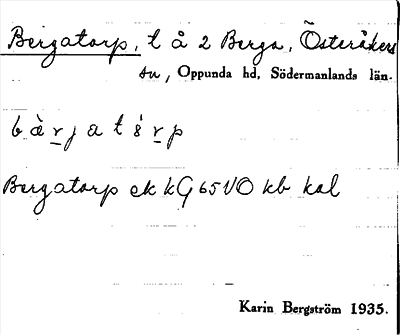 Bergatorp, t å 2 Berga, Österåkers
sn, Oppunda hd, Södermanlands län.
b è r j a t ò r p
Bergatorp ek kG 65 VO kb kal
Karin Bergström 1935.